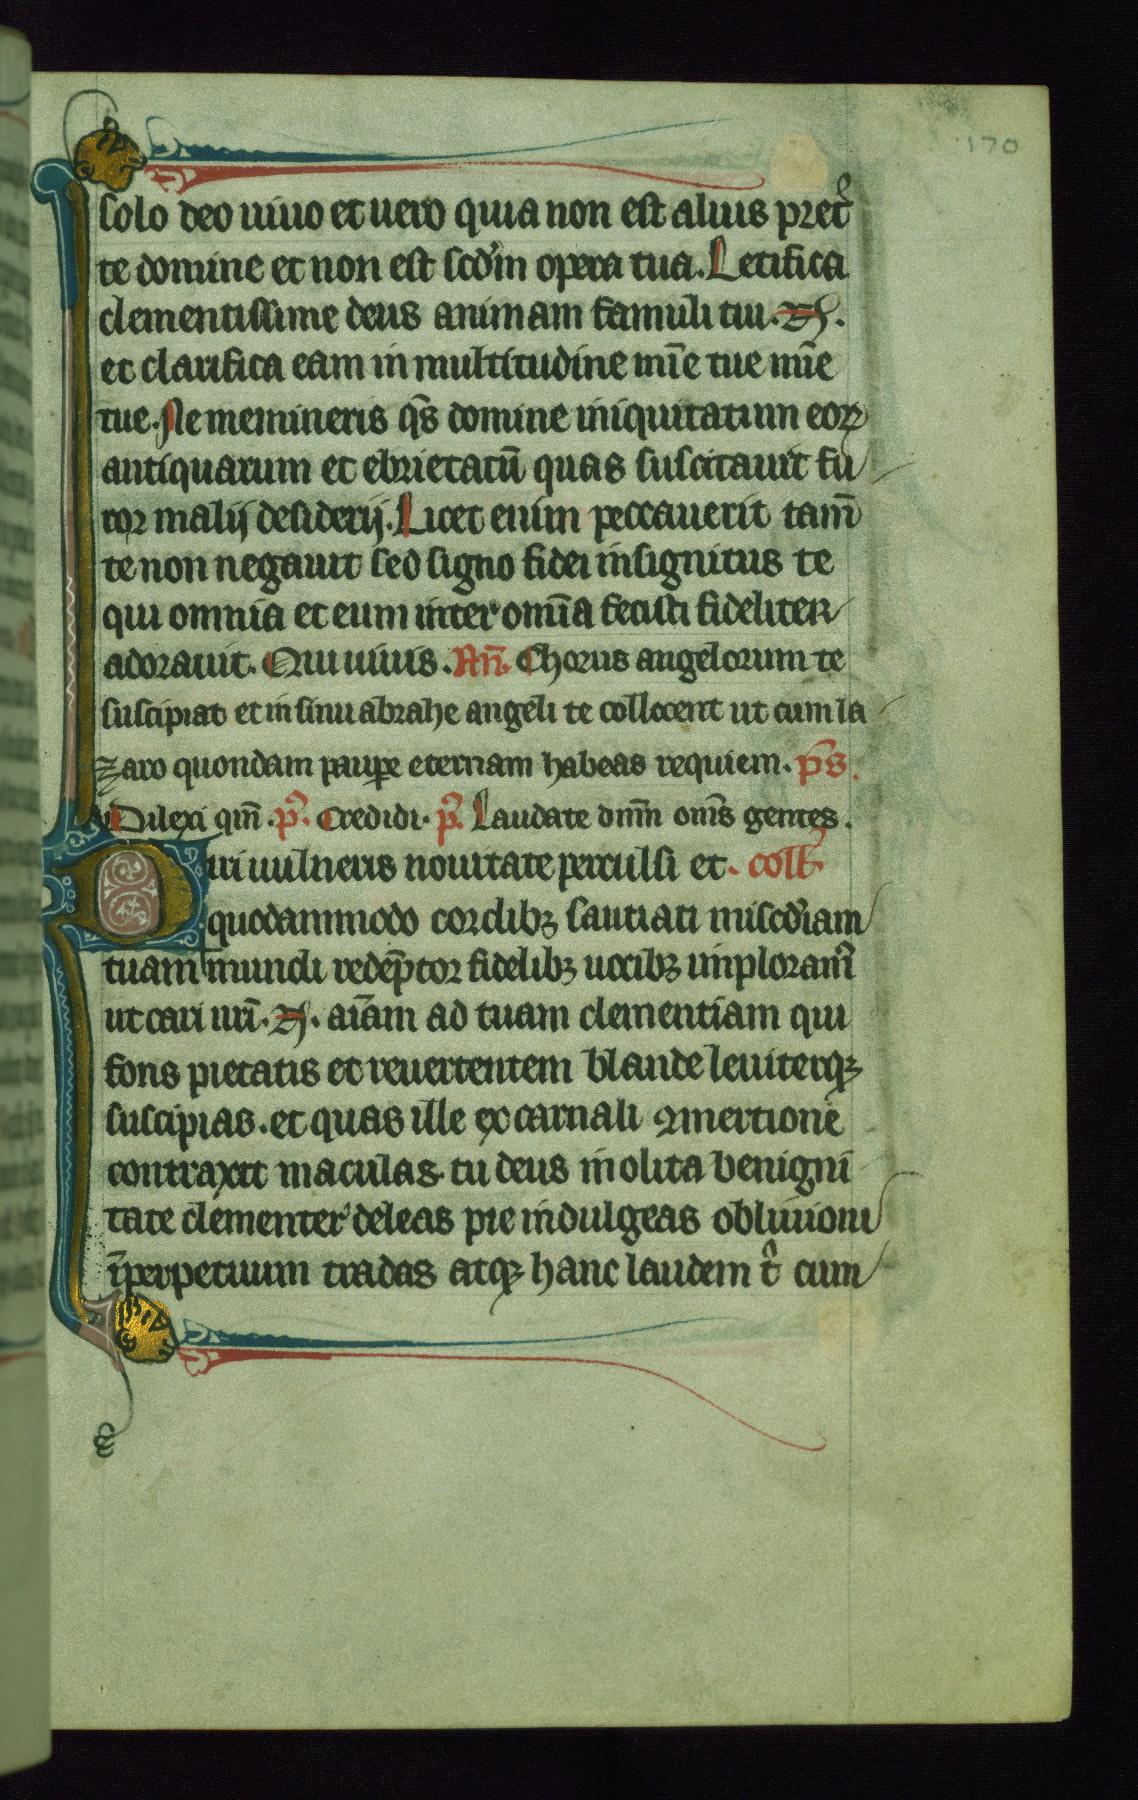 170
solo deo uiuo et uero quia non est alius pret̾
te domine et non est scd̾m opera tua. Letifica
clementissime deus animam famuli tui. N.
et clarifica eam in multitudine mīe tue mīe
tue. Ne memineris qs̄ domine iniquitatum eoꝝ
antiquarum et ebrietatū quas suscitauit fu
ror malij desiderij. Licet enim peccauerit tam̄
te non negauit sed signo fidei insignitus te
qui omnia et eum inter om̄ia fecisti fideliter
adorauit. Qui uiuis. An̄. Chorus angelorum te
suscipiat et in sinu abrahe angeli te collocent ut cum la
zaro quondam paupe eternam habeas requiem. p̄s.
Dilexi qm̄. p̄. Credidi. p̄. Laudate dnm̄ om̄s gentes.
Diri uulneris nouitate perculsi et. coll̄
quodammodo cordibꝫ sautiati miscd̾iam
tuam mundi redēptor fidelibꝫ uocibꝫ imploram̾
ut cari nr̄i. N. aīam ad tuam clementiam qui
fons pietatis et reuertentem blande leuiterqꝫ
suscipias. et quas ille ex carnali ꝯmertione
contraxit maculas. tu deus inolita benigni
tate clementer deleas pie indulgeas obliuioni
īperpetuum tradas atqꝫ hanc laudem t̾ cum